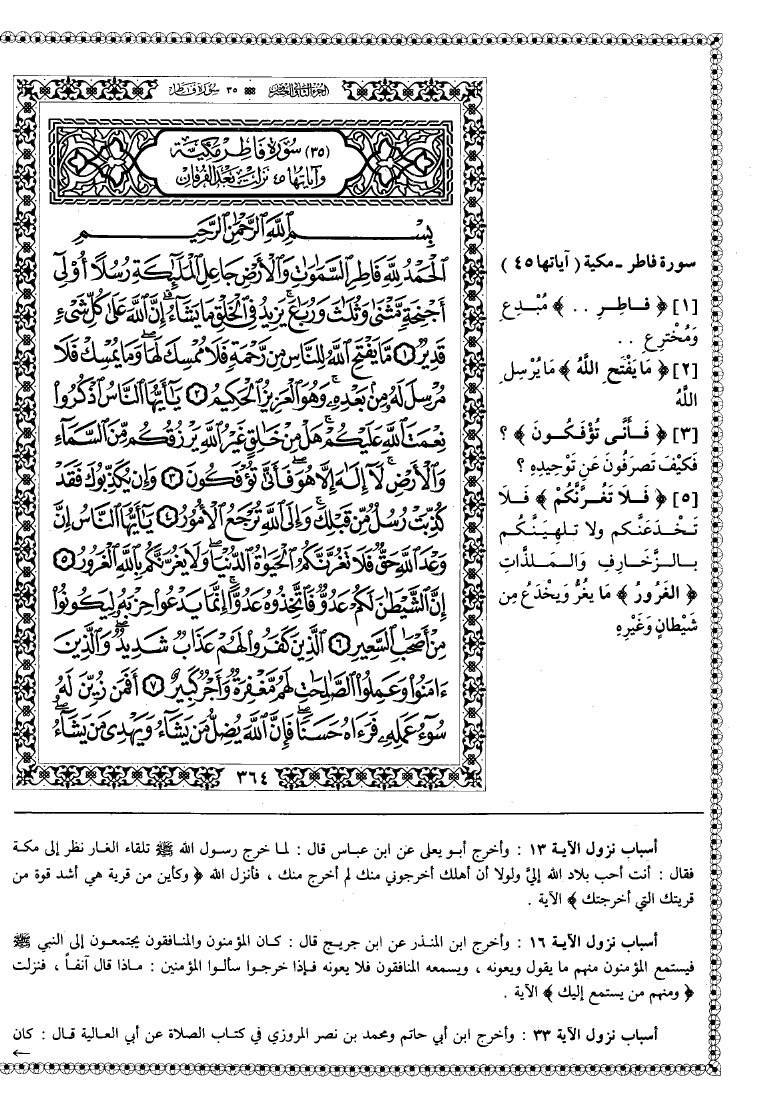 الجزء الثاني والعشرون ٣٥ سورة فاطر
(٣٥) سُورَة فَاطِر مَكِّيَّة
وآياتها ٤٥ نزلت بعد الفرقان
بِسْمِ ٱللَّهِ ٱلرَّحْمَٰنِ ٱلرَّحِيمِ
ٱلْحَمْدُ لِلَّهِ فَاطِرِ ٱلسَّمَٰوَٰتِ وَٱلْأَرْضِ جَاعِلِ ٱلْمَلَٰٓئِكَةِ رُسُلًا أُو۟لِىٓ
أَجْنِحَةٍ مَّثْنَىٰ وَثُلَٰثَ وَرُبَٰعَ ۚ يَزِيدُ فِى ٱلْخَلْقِ مَا يَشَآءُ ۚ إِنَّ ٱللَّهَ عَلَىٰ كُلِّ شَىْءٍ
قَدِيرٌ ۝١ مَّا يَفْتَحِ ٱللَّهُ لِلنَّاسِ مِن رَّحْمَةٍ فَلَا مُمْسِكَ لَهَا ۖ وَمَا يُمْسِكْ فَلَا
مُرْسِلَ لَهُۥ مِنۢ بَعْدِهِۦ ۚ وَهُوَ ٱلْعَزِيزُ ٱلْحَكِيمُ ۝٢ يَٰٓأَيُّهَا ٱلنَّاسُ ٱذْكُرُوا۟
نِعْمَتَ ٱللَّهِ عَلَيْكُمْ ۚ هَلْ مِنْ خَٰلِقٍ غَيْرُ ٱللَّهِ يَرْزُقُكُم مِّنَ ٱلسَّمَآءِ
وَٱلْأَرْضِ ۚ لَآ إِلَٰهَ إِلَّا هُوَ ۖ فَأَنَّىٰ تُؤْفَكُونَ ۝٣ وَإِن يُكَذِّبُوكَ فَقَدْ
كُذِّبَتْ رُسُلٌ مِّن قَبْلِكَ ۚ وَإِلَى ٱللَّهِ تُرْجَعُ ٱلْأُمُورُ ۝٤ يَٰٓأَيُّهَا ٱلنَّاسُ إِنَّ
وَعْدَ ٱللَّهِ حَقٌّ ۖ فَلَا تَغُرَّنَّكُمُ ٱلْحَيَوٰةُ ٱلدُّنْيَا ۖ وَلَا يَغُرَّنَّكُم بِٱللَّهِ ٱلْغَرُورُ ۝٥
إِنَّ ٱلشَّيْطَٰنَ لَكُمْ عَدُوٌّ فَٱتَّخِذُوهُ عَدُوًّا ۚ إِنَّمَا يَدْعُوا۟ حِزْبَهُۥ لِيَكُونُوا۟
مِنْ أَصْحَٰبِ ٱلسَّعِيرِ ۝٦ ٱلَّذِينَ كَفَرُوا۟ لَهُمْ عَذَابٌ شَدِيدٌ ۖ وَٱلَّذِينَ
ءَامَنُوا۟ وَعَمِلُوا۟ ٱلصَّٰلِحَٰتِ لَهُم مَّغْفِرَةٌ وَأَجْرٌ كَبِيرٌ ۝٧ أَفَمَن زُيِّنَ لَهُۥ
سُوٓءُ عَمَلِهِۦ فَرَءَاهُ حَسَنًا ۖ فَإِنَّ ٱللَّهَ يُضِلُّ مَن يَشَآءُ وَيَهْدِى مَن يَشَآءُ ۖ
٣٦٤
سورة فاطر - مكية ( آياتها ٤٥ )
[١] ﴿ فَـاطِـرِ .. ﴾ مُبْـدِعِ
وَمُخْتَرِعِ ..
[٢] ﴿ مَا يَفْتَحِ اللَّهُ ﴾ مَا يُرْسِلِ
اللَّهُ
[٣] ﴿ فَـأَنَّى تُؤْفَكُـونَ ﴾ ؟
فَكَيْفَ تُصرَفُونَ عَنِ تَوْحِيدِهِ ؟
[٥] ﴿ فَـلَا تَغُـرَّنَّكُمْ ﴾ فَـلَا
تَـخْـدَعَنَّكم ولا تـلـهِيَـنَّكُـم
بـالـزَّخَارِفِ وَالـمَـلـذَّاتِ
﴿ الغَرُورُ ﴾ مَا يغُرُّ وَيخْدَعُ مِن
شَيْطانٍ وَغَيْرِهِ
أسباب نزول الآية ١٣ : وأخرج أبو يعلى عن ابن عباس قال : لما خرج رسول الله ﷺ تلقاء الغار نظر إلى مكة
فقال : أنت أحب بلاد الله إليَّ ولولا أن أهلك أخرجوني منك لم أخرج منك ، فأنزل الله ﴿ وكأين من قرية هي أشد قوة من
قريتك التي أخرجتك ﴾ الآية .
أسباب نزول الآية ١٦ : وأخرج ابن المنذر عن ابن جريج قال : كان المؤمنون والمنافقون يجتمعون إلى النبي ﷺ
فيستمع المؤمنون منهم ما يقول ويعونه ، ويسمعه المنافقون فلا يعونه فإذا خرجوا سألوا المؤمنين : ماذا قال آنفاً ، فنزلت
﴿ ومنهم من يستمع إليك ﴾ الآية .
أسباب نزول الآية ٣٣ : وأخرج ابن أبي حاتم ومحمد بن نصر المروزي في كتاب الصلاة عن أبي العالية قال : كان
←